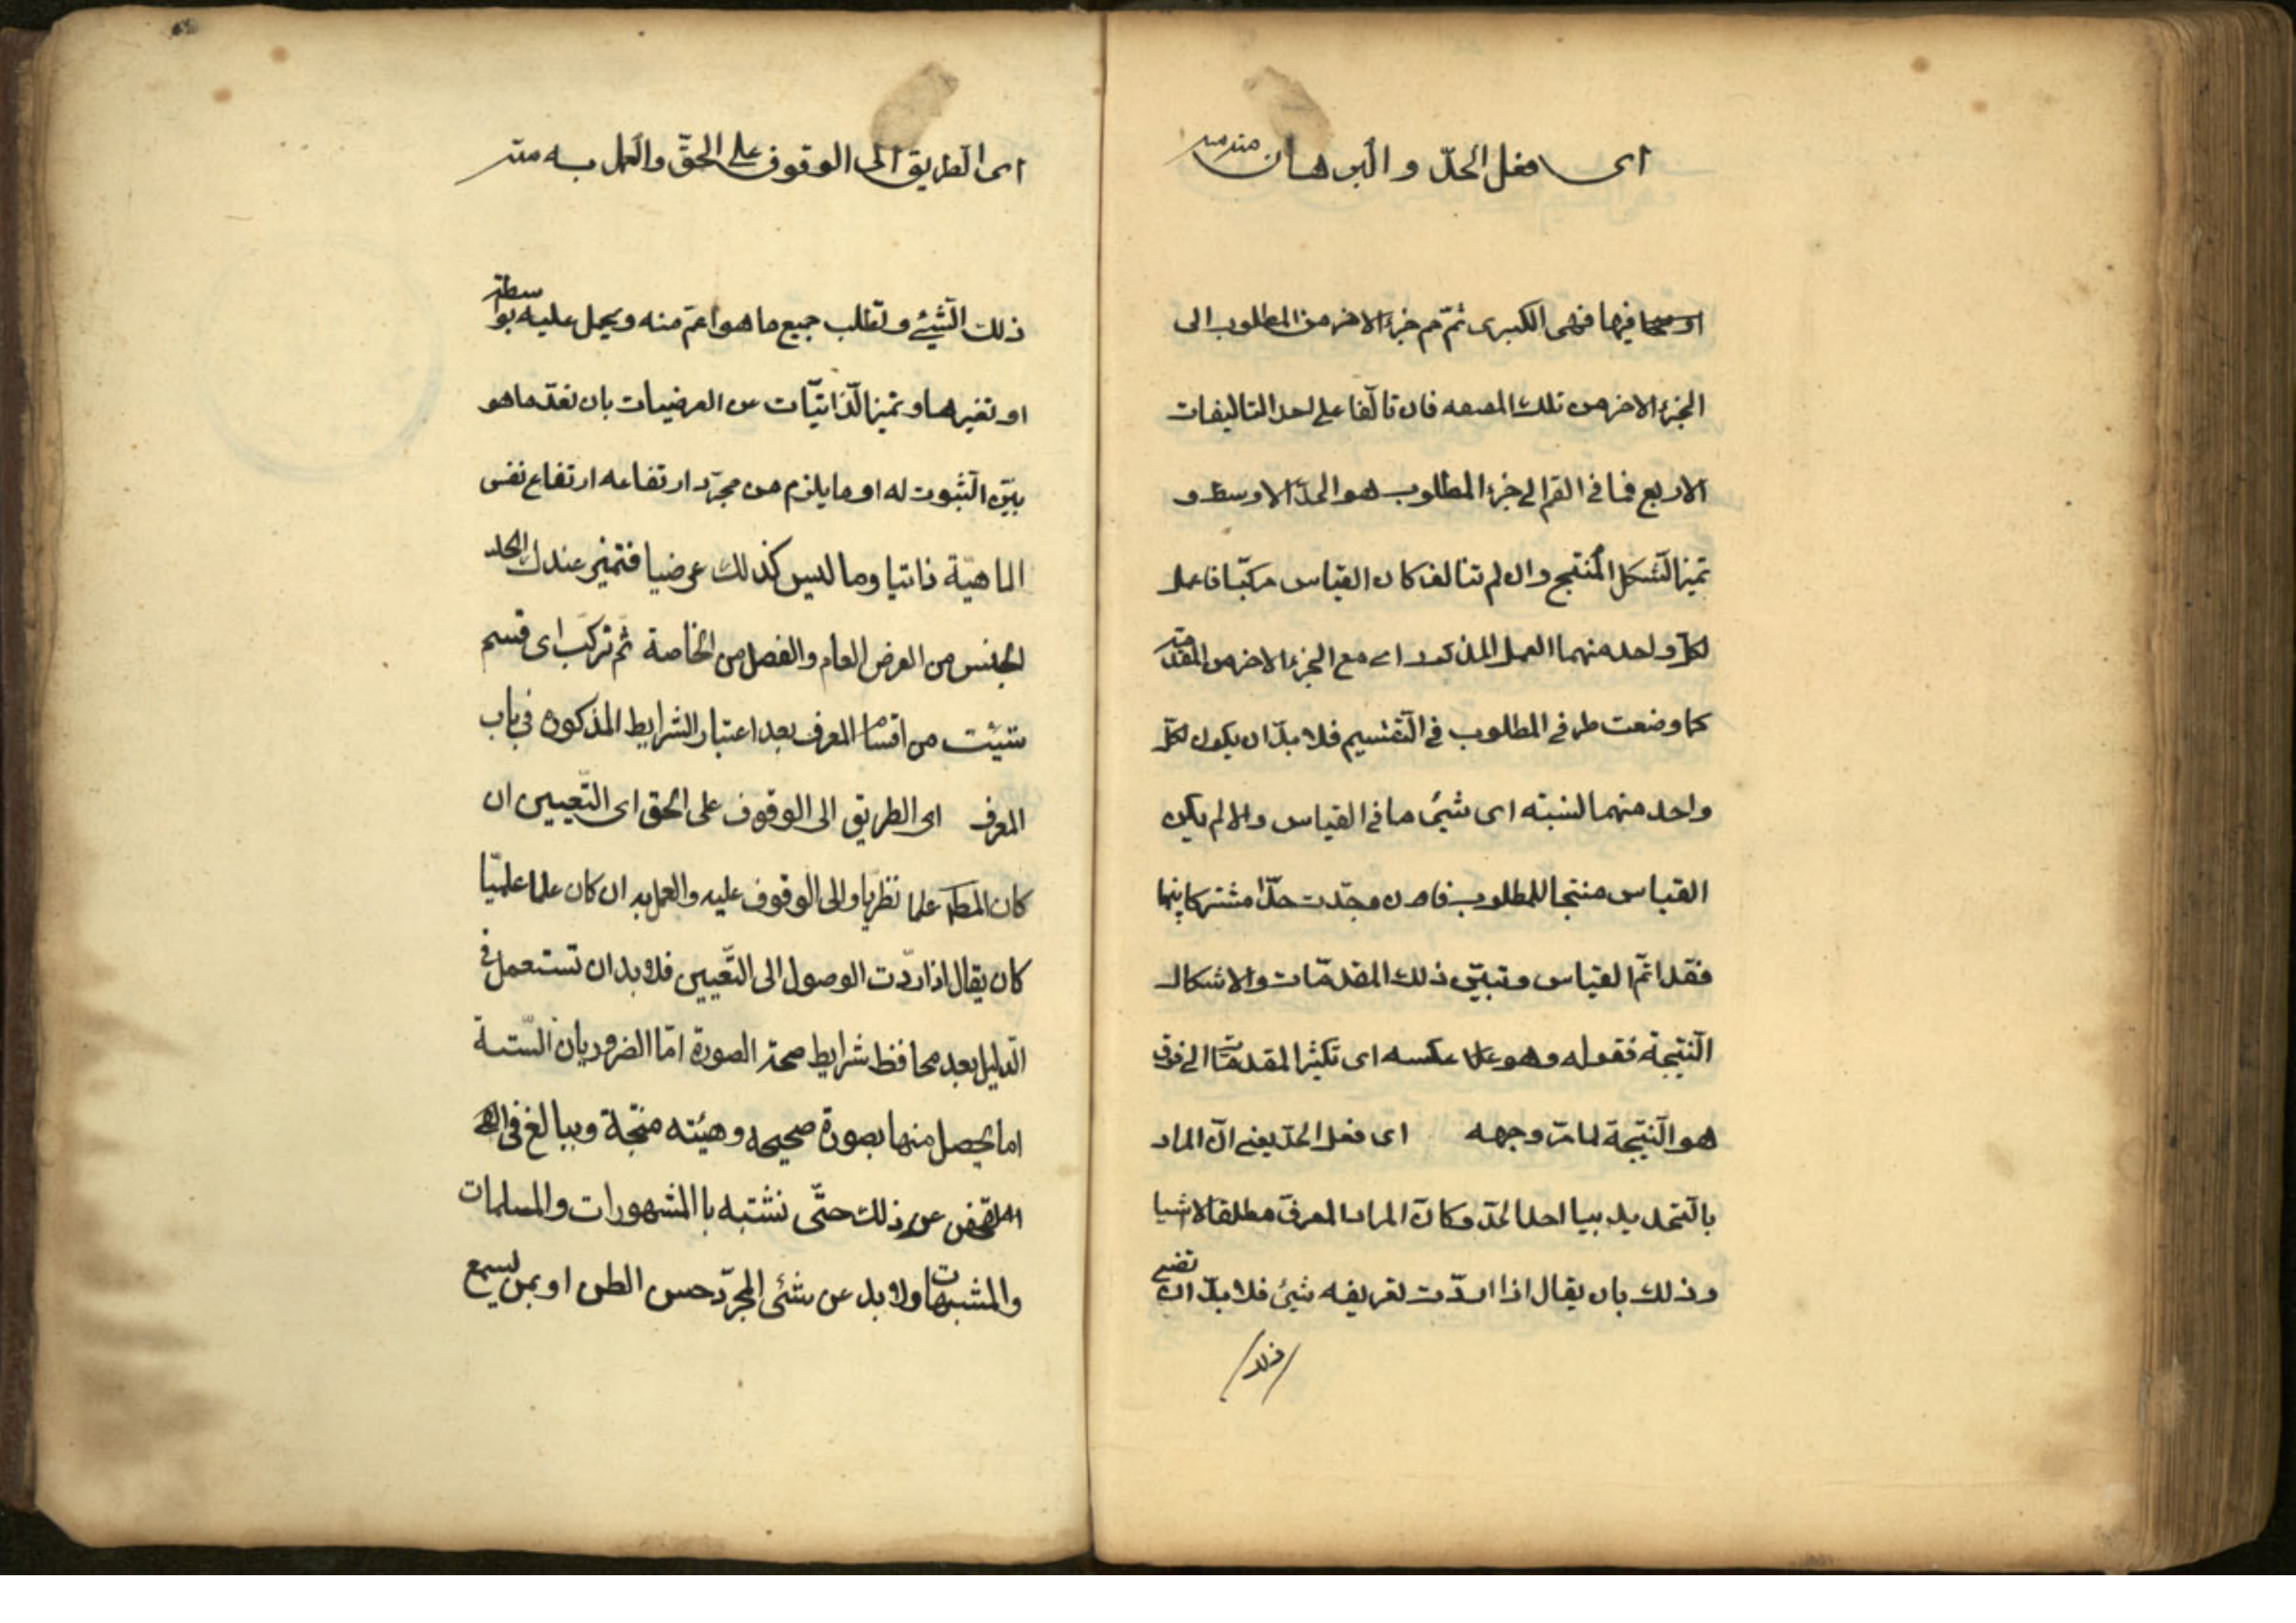 اى فعل الحدّ و البرهان منه
فيها فهى الكبرى ثمّ ضم جزء الاخر من المطلوب الى
الجزء الاخر من تلك المقدمه فان تالّفا على احد التاليفات
الاربع فما فى القرالى جزء المطلوب هو الحدّ الاوسط و
تميز الشّكل المُنتج وان لم تتالف كان القياس مركبّا فاعمل
لكلّ واحد منهما العمل المذكور اى مع الجزء الاخر من المقدّمة
كما وضعت طرفى المطلوب فى التّقسيم فلا بدّ ان يكون لكلّ
واحد منهما نسبته اى شئ ما فى القياس والا لم يكن
القياس منتجا للمطلوب فان وجدّت حدّا مشتركا بينهما
فقد اتمّ القياس وتبيّن ذلك المقدمّات والاشكال
النّتيجة فقوله وهو على عكسه اى تكثير المقدمات الى فوق
هو النّتيجة لما مرّ وجهه اى فعل الحدّ يعنى انّ المراد
بالتّحديد بيا احد الحدّ وكانّ المراد المعرفّ مطلقا لاشيا
وذلك بان يقال اذا اردّت تعريفه شئ فلا بدّ ان تضع
ذلك
اى الطريق الى الوقوف على الحقّ والعمل به منه
ذلك الشّيئ وتطلب جميع ما هو اعمّ منه ويحمل عليه بواسطة
او بغيرها وتميز الذّاتيّات عن العرضيات بان تعدّ ما هو
بيّن الثّبوت له او ما يلزم من مجرّد ارتفاعه ارتفاع نفس
الماهيّة ذاتيا وما ليس كذلك عرضيا فتميز عندك
الجنس من العرض العام والفصل من الخاصة ثم تركّب اى قسم
شئت من اقسام المعرف بعد اعتبار الشرايط المذكوره فى باب
المعرف اى الطريق الى الوقوف على الحق اى التّعيين ان
كان المط علما نظريّا والى الوقوف عليه والعمل به ان كان علما عمليّا
كان يقال اذا اردّت الوصول الى التّعيين فلا بد ان تستعمل فى
الدّليل بعد محافظ شرايط صحة الصورة امّا الضروريان السّتة
اما يحصل منها بصورة صحيحه وهيئته منتجة ويبالغ فى
التفحّص عن ذلك حتّى نشتبه با المشهورات والمسلمات
والمشبهات ولا بد عن شئى المجرّد حسن الظن او بمن يسمع